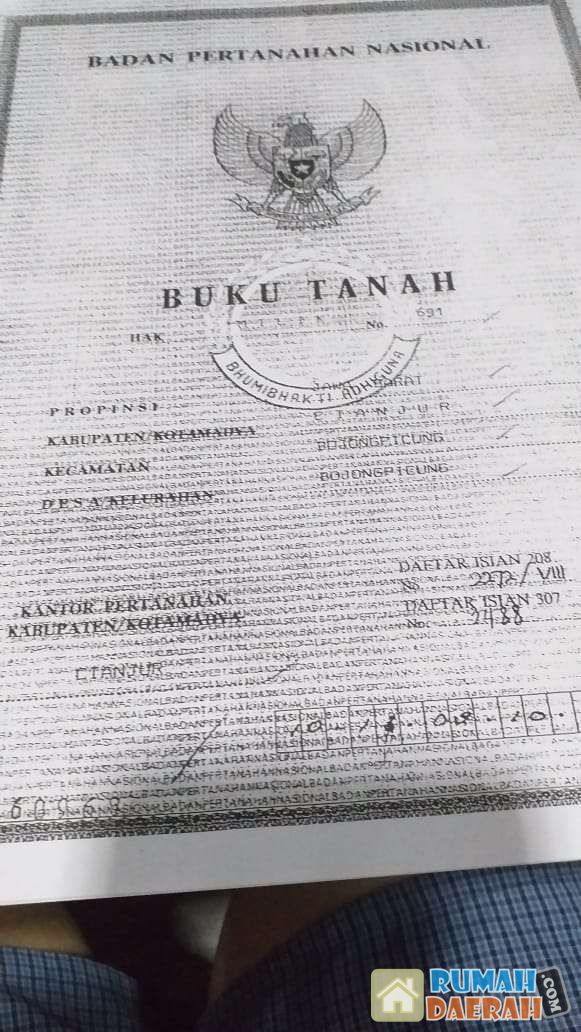 BADAN PERTANAHAN NASIONAL
BUKU TANAH
HAK MILIK No. 691
BHUMIBHAKTI ADHIGUNA
PROPINSI JAWA BARAT
KABUPATEN/KOTAMADYA CIANJUR
KECAMATAN BOJONGPICUNG
DESA/KELURAHAN BOJONGPICUNG
DAFTAR ISIAN 208
No. /VIII
KANTOR PERTANAHAN
DAFTAR ISIAN 307
KABUPATEN/KOTAMADYA
No. 2488
CIANJUR
10
08 10
RUMAH
DAERAH
.COM